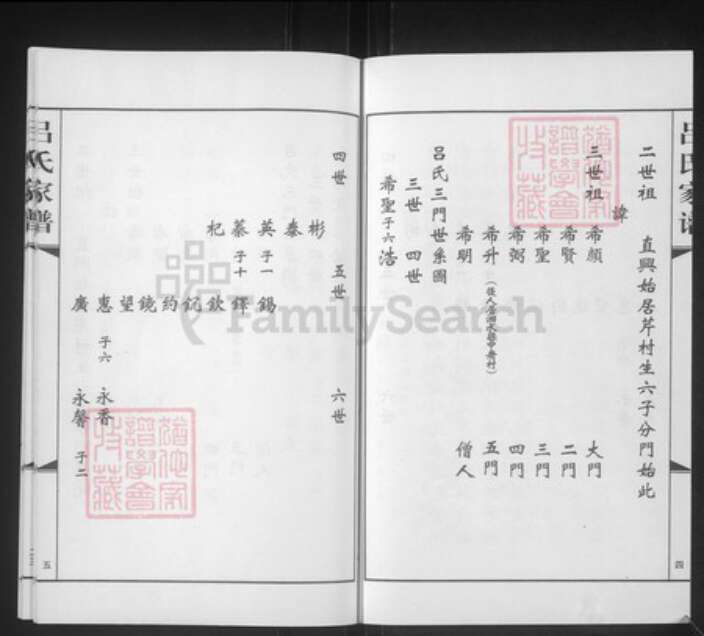 呂氏家譜
二世祖 諱直興始居芹村生六子分門始此
三世祖 希顏 大門
希賢 二門
希聖 三門
希弼 四門
希升 五門
希明 僧人
呂氏三門世系圖
三世 四世
希聖 子六 浩
四
四世 五世 六世
彬
泰
英 子一 錫
蓁 子十 鐸
杞 欽
約
鏡
望
惠 子六 永香
廣 永馨 子二
五
呂氏家譜
FamilySearch